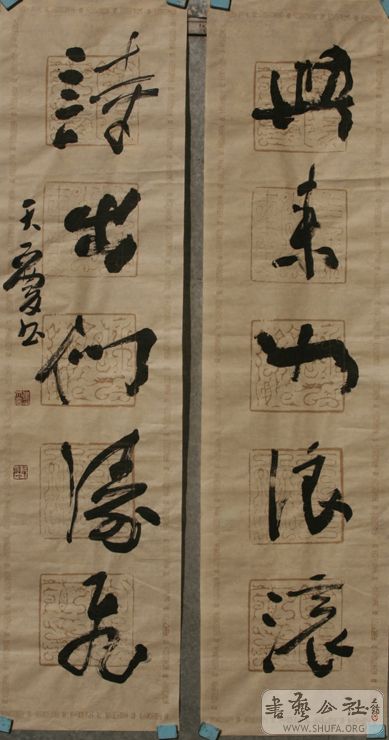 興来如浪滚
詩出似濤飛
天慶书
書藝公社
WWW.SHUFA.ORG